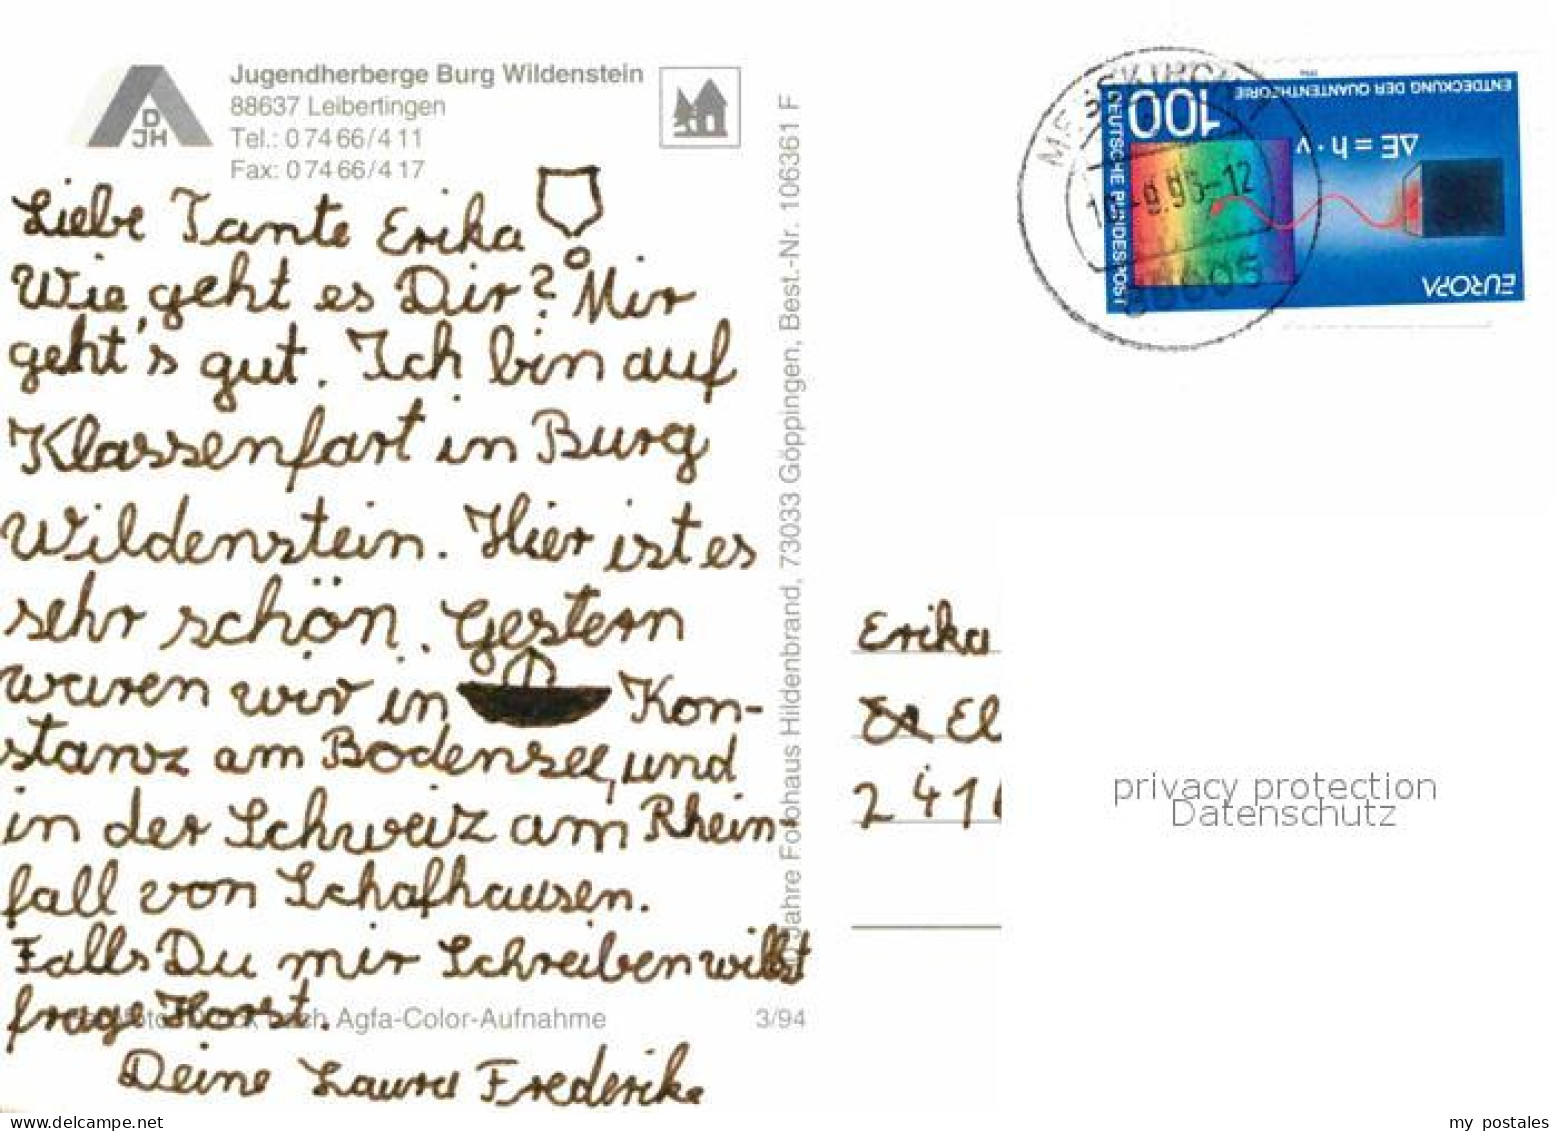 Jugendherberge Burg Wildenstein
88637 Leibertingen
Tel.: 0 74 66/4 11
Fax: 0 74 66/4 17
DJH
Liebe Tante Erika
Wie geht es Dir? Mir
geht's gut. Ich bin auf
Klassenfart in Burg
Wildenstein. Hier ist es
sehr schön. Gestern
waren wir in Kon-
stanz am Bodensee, und
in der Schweiz am Rhein-
fall von Schafhausen.
Falls Du mir Schreiben willst
frage Horst.
Deine Laura Frederike
Agfa-Color-Aufnahme
3/94
Jahre Fotohaus Hildenbrand, 73033 Göppingen, Best.-Nr. 106361 F
100
DEUTSCHE BUNDESPOST
ENTDECKUNG DER QUANTENTHEORIE
ΔE = h · ν
EUROPA
Erika
El
241
privacy protection
Datenschutz
my postales